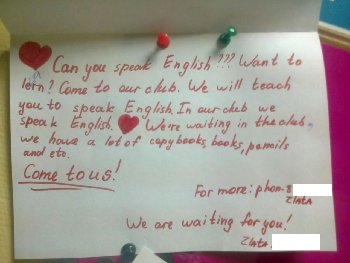 Can you speak English??? Want to
lern? Come to our club. We will teach
you to speak English. In our club we
speak English. We're waiting in the club,
we have a lot of copybooks, books, pencils
and etc.
Come to us!
For more: phon-8
Zlata
We are waiting for you!
Zlata